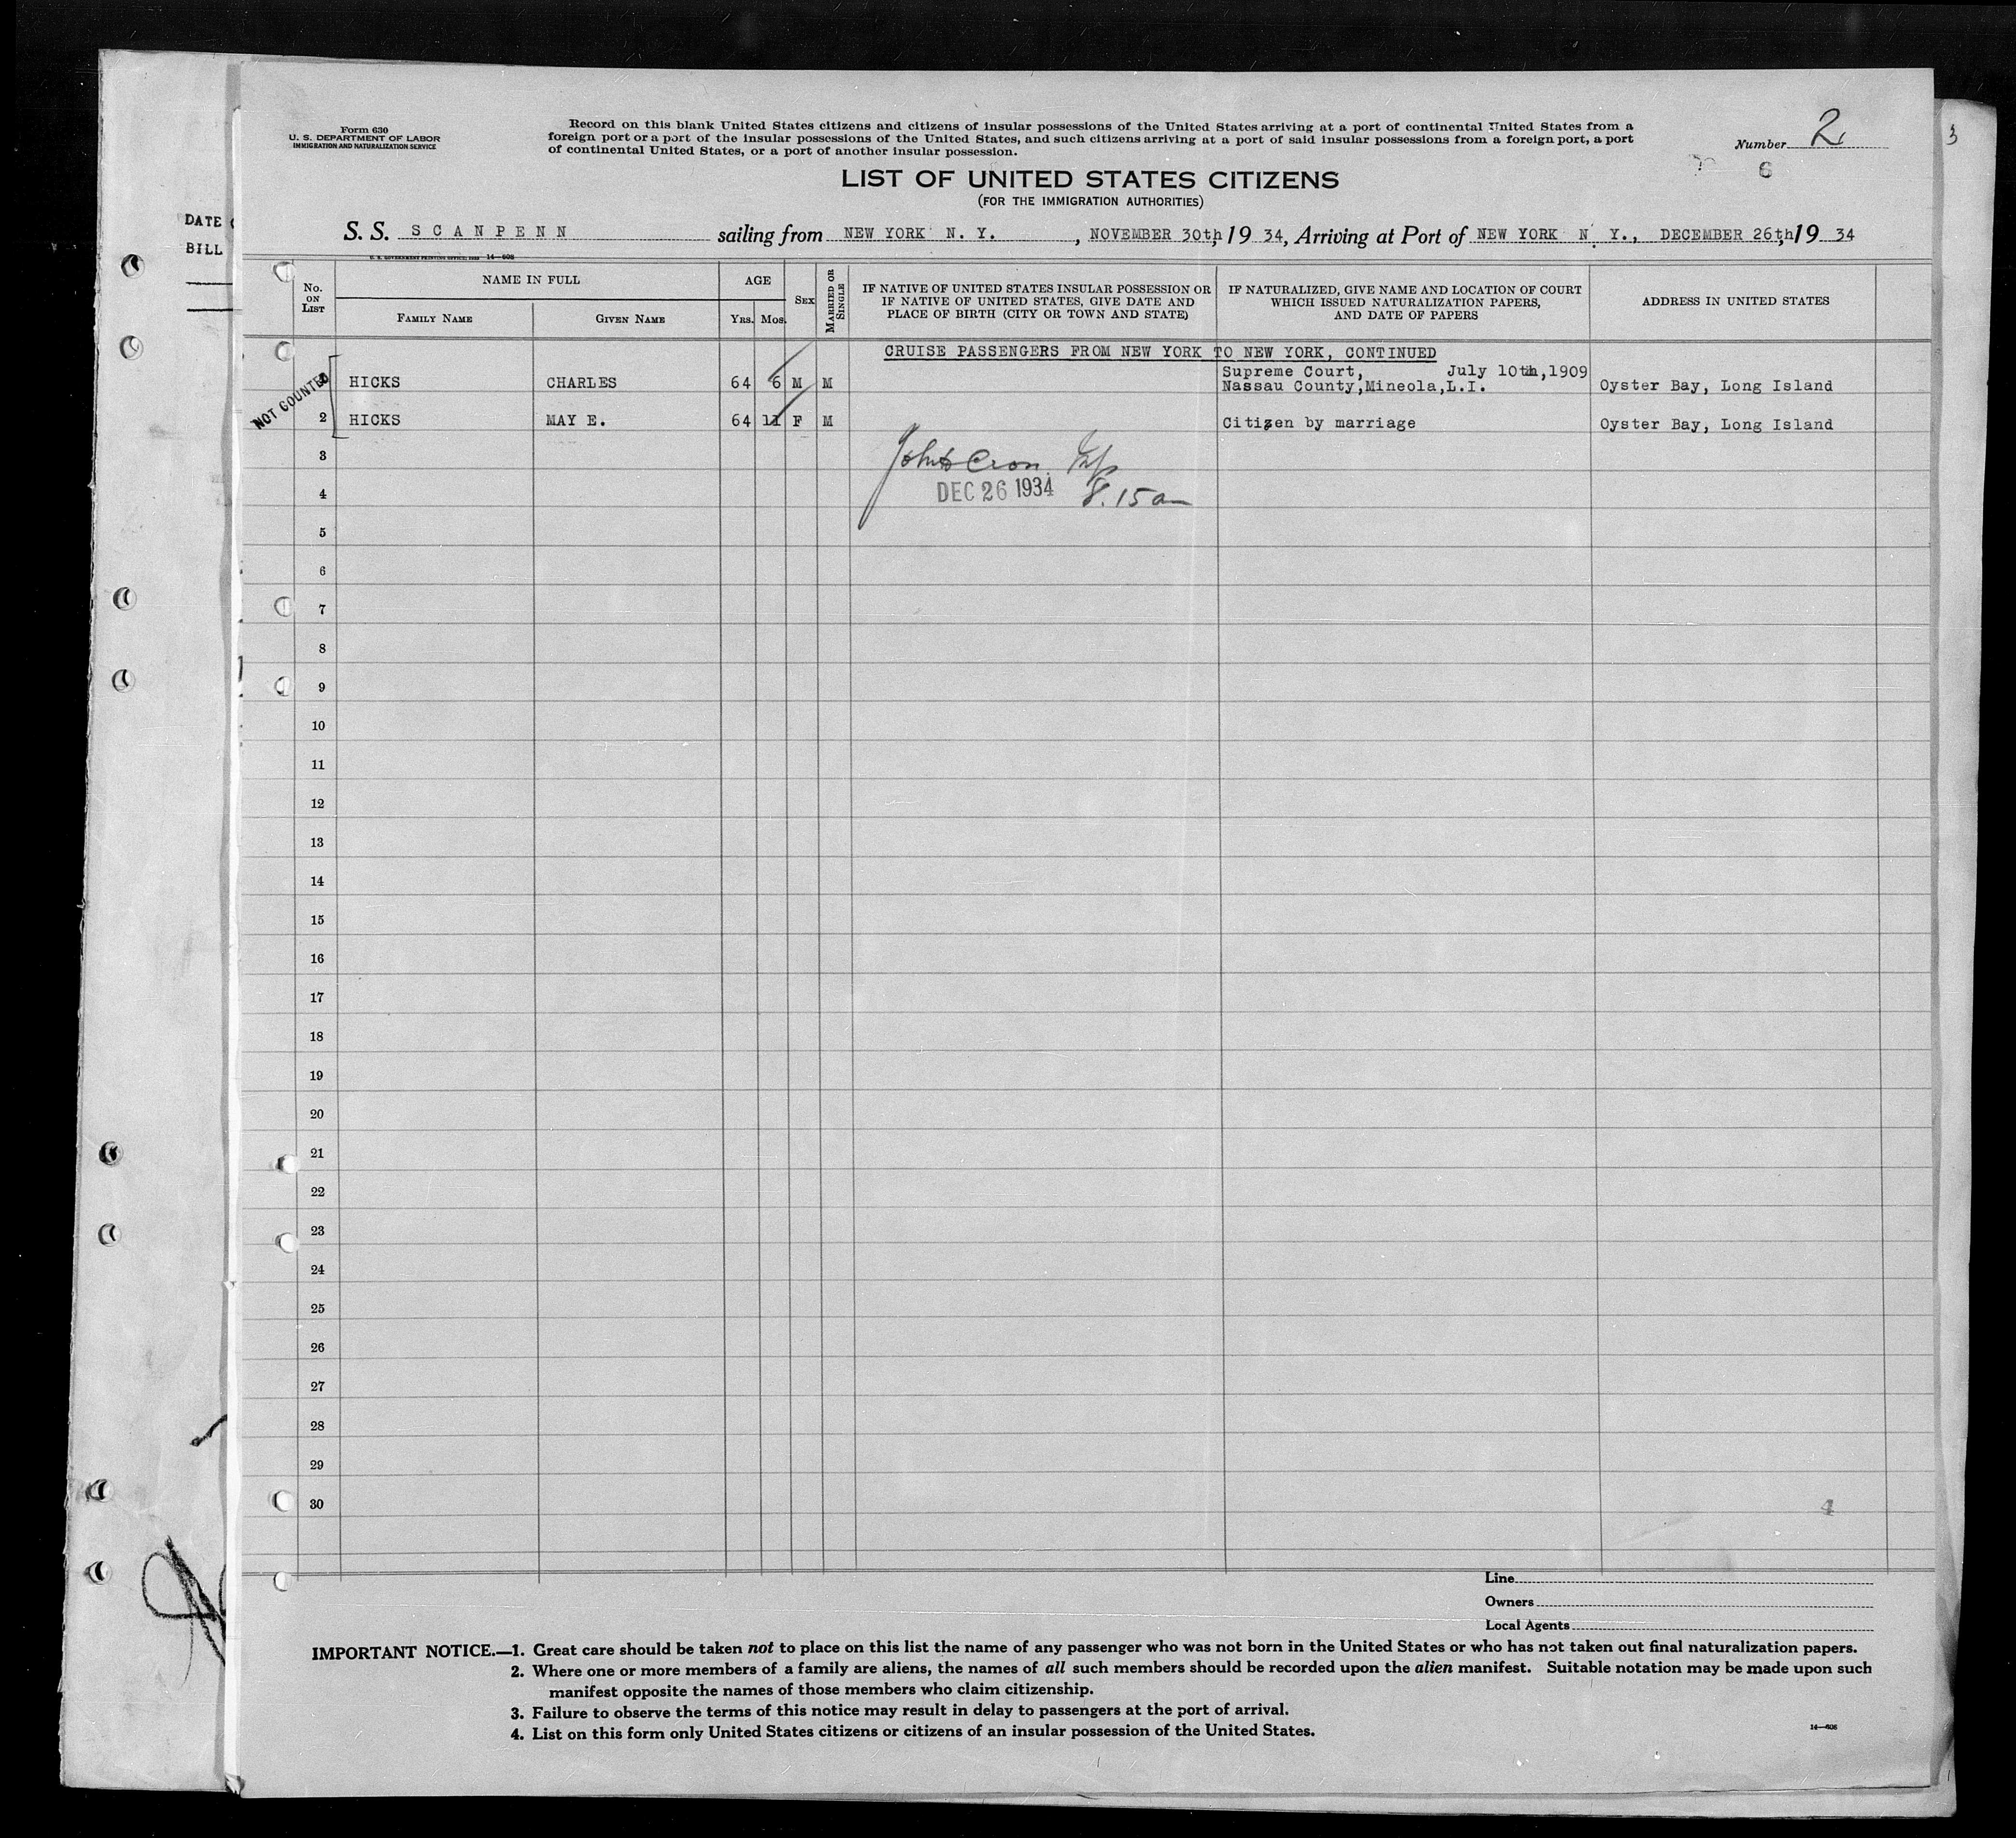 Form 630
U. S. DEPARTMENT OF LABOR
IMMIGRATION AND NATURALIZATION SERVICE
Record on this blank United States citizens and citizens of insular possessions of the United States arriving at a port of continental United States from a
foreign port or a port of the insular possessions of the United States, and such citizens arriving at a port of said insular possessions from a foreign port, a port
of continental United States, or a port of another insular possession.
Number 2
3
6
LIST OF UNITED STATES CITIZENS
(FOR THE IMMIGRATION AUTHORITIES)
DATE
BILL
S. S. SCANPENN sailing from NEW YORK N. Y. , NOVEMBER 30th, 19 34, Arriving at Port of NEW YORK N. Y., DECEMBER 26th, 19 34
No. ON LIST
NAME IN FULL
FAMILY NAME
GIVEN NAME
AGE
YRS. MOS.
SEX
MARRIED OR SINGLE
IF NATIVE OF UNITED STATES INSULAR POSSESSION OR
IF NATIVE OF UNITED STATES, GIVE DATE AND
PLACE OF BIRTH (CITY OR TOWN AND STATE)
IF NATURALIZED, GIVE NAME AND LOCATION OF COURT
WHICH ISSUED NATURALIZATION PAPERS,
AND DATE OF PAPERS
ADDRESS IN UNITED STATES
CRUISE PASSENGERS FROM NEW YORK TO NEW YORK, CONTINUED
NOT COUNTED
HICKS CHARLES 64 6 M M Supreme Court, July 10th,1909
Nassau County,Mineola,L.I. Oyster Bay, Long Island
2 HICKS MAY E. 64 11 F M Citizen by marriage Oyster Bay, Long Island
3
4
DEC 26 1934 8.15 am
5
6
7
8
9
10
11
12
13
14
15
16
17
18
19
20
21
22
23
24
25
26
27
28
29
30
4
Line
Owners
Local Agents
IMPORTANT NOTICE.—1. Great care should be taken not to place on this list the name of any passenger who was not born in the United States or who has not taken out final naturalization papers.
2. Where one or more members of a family are aliens, the names of all such members should be recorded upon the alien manifest. Suitable notation may be made upon such
manifest opposite the names of those members who claim citizenship.
3. Failure to observe the terms of this notice may result in delay to passengers at the port of arrival.
4. List on this form only United States citizens or citizens of an insular possession of the United States.
14—608